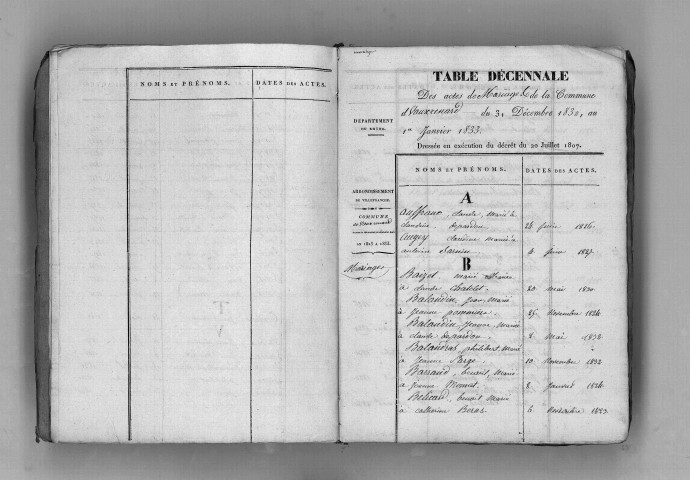 NOMS ET PRÉNOMS. DATES DES ACTES.
mariages
TABLE DÉCENNALE
Des actes de Mariages de la Commune
d'Vauxrenard du 31 Décembre 1832, au
1er Janvier 1833.
Dressée en exécution du décret du 20 Juillet 1807.
DÉPARTEMENT
DU RHÔNE.
ARRONDISSEMENT
DE VILLEFRANCHE.
COMMUNE
de Vauxrenard
1823 à 1833.
Mariages
NOMS ET PRÉNOMS. DATES DES ACTES.
A
Auffrane, claude, Marié à
claudine Depardon 24 Juin 1826.
Augey claudine mariée à
antoine 4 Juin 1827.
B
Baizet marié
à claude Chatelet 20 mai 1830
Balandin, jean, Marié
à Jeanne 25 Novembre 1824
Balandin, Jeanne, Mariée
à claude Depardon 2 Mai 1832
Balandras, philibert, Marié
à Jeanne Large 10 Novembre 1832
Barraud, benoit, Marié
à Jeanne Monnet 8 Janvier 1824
Belicard, benoit Marié
à catherine 6 Novembre 1823